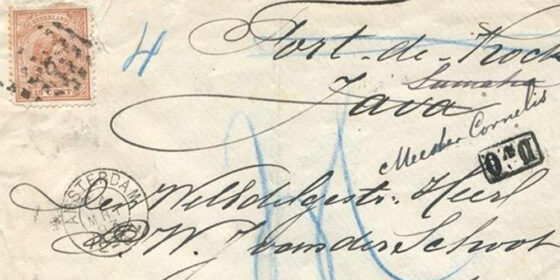 NEDERLAND
4
Fort-de-Kock
Sumatra
Java
Meester Cornelis
D.O
AMSTERDAM
MRT
De WelEdelgestr. Heer
W. J. van der Schoot